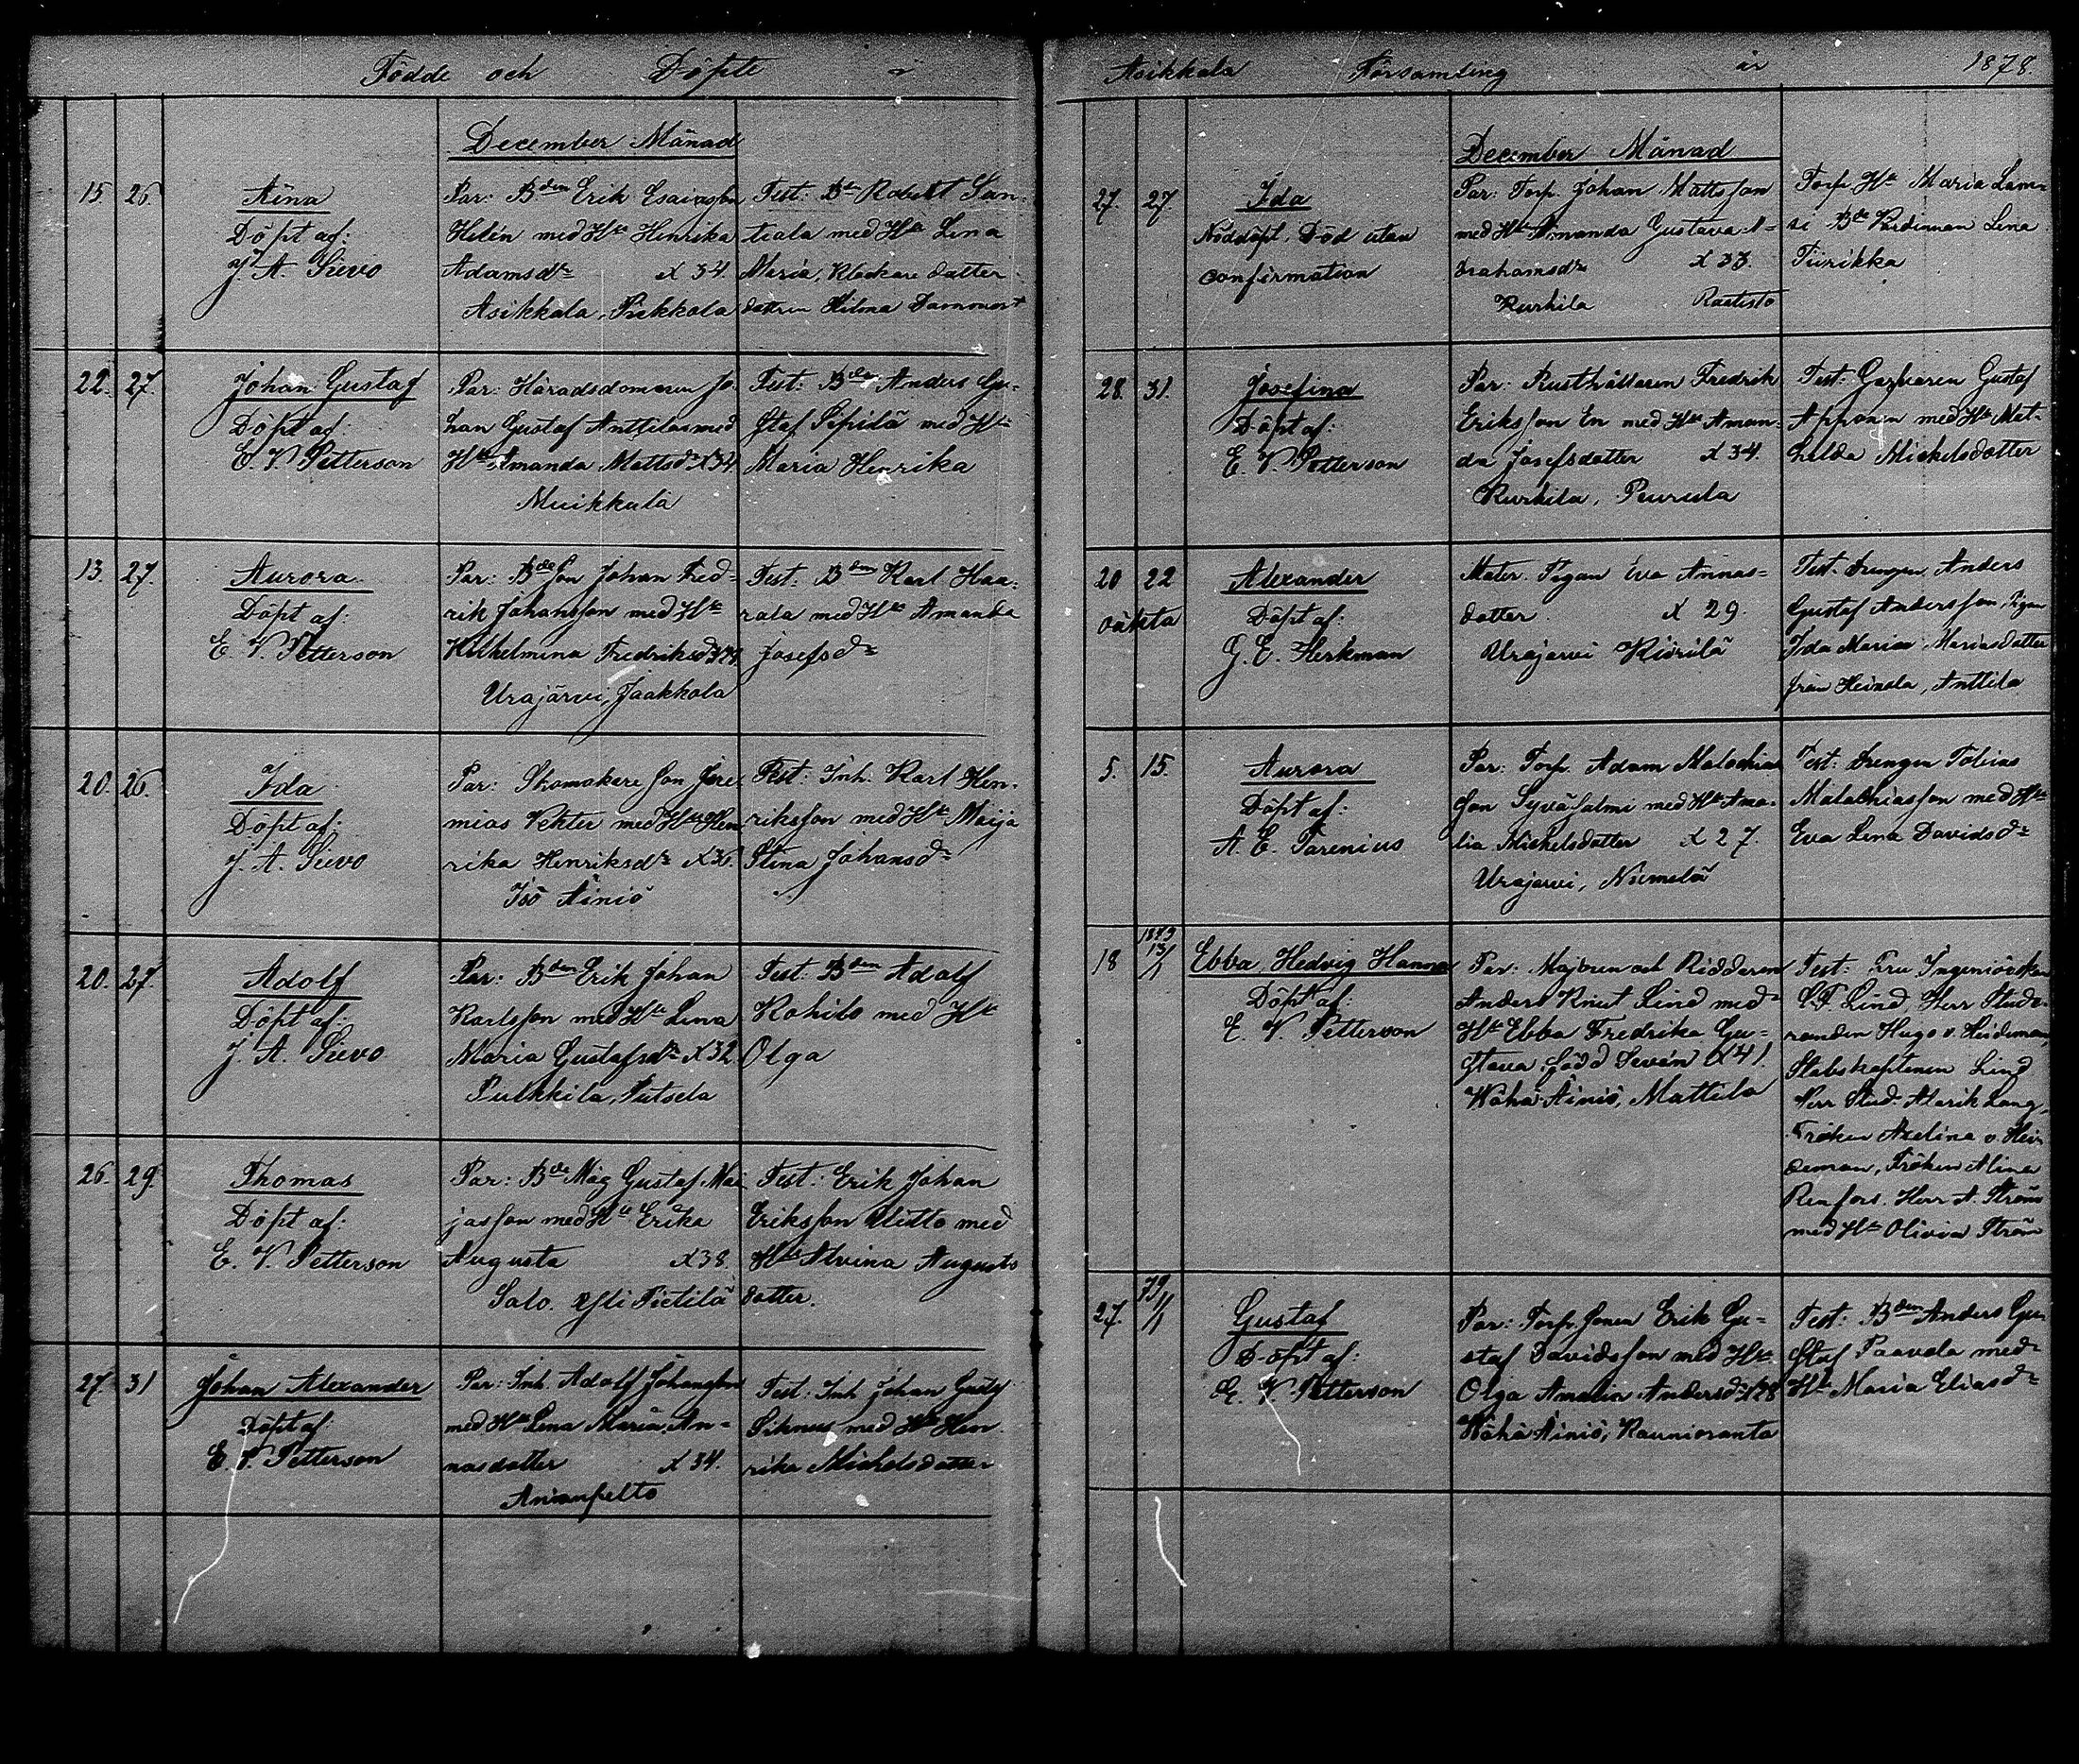 Födde och Döpte i
December Månad
15. 26. Aina
Döpt af:
J. A. Sievo
Par: Bden Erik Esaiasson
Helin med Hu Henrika
Adamsdr X 34.
Asikkala, Piekkola
Test: Bn Robert San-
tiala med Hu Lina
Maria, Klockare datter
dattren Hilma Dammert
22. 27. Johan Gustaf
Döpt af:
E. V. Petterson
Par: Häradsdomaren Jo-
han Gustaf Anttila med
Hu Amanda Mattsdr X 34.
Muikkala
Test: Bden Anders Gu-
staf Sipilä med Hu
Maria Henrika
13. 27. Aurora
Döpt af:
E. V. Petterson
Par: Bde Son Johan Fred-
rik Johansson med Hu
Vilhelmina Fredriksdr X 24.
Urajärvi, Jaakkola
Test: Bden Karl Haa-
rala med Hu Amanda
Josefsdr
20. 26. Ida
Döpt af:
J. A. Sievo
Par: Skomakare son Jere-
mias Vekter med Hu Hen
rika Henriksdr X 36.
Iso Äiniö
Test: Inh. Karl Hen-
riksson med Hu Maija
Stina Johansdr
20. 27. Adolf
Döpt af:
J. A. Sievo
Par: Bden Erik Johan
Karlsson med Hu Lena
Maria Gustafsdr X 32
Pulkkila, Putsela
Test: Bden Adolf
Kohilo med Hu
Olga
26. 29 Thomas
Döpt af:
E. V. Petterson
Par: Bde Måg Gustaf Mai
jasson med Hu Erika
Augusta X 38.
Salo. Yli Pietilä
Test: Erik Johan
Eriksson Utitto med
Hu Alvina Augusts
datter.
27. 31 Johan Alexander
Döpt af
E. V. Petterson
Par: Inh. Adolf Johansson
med Hu Lena Maria An-
nasdatter X 34.
Anianpelto
Test: Inh Johan Gustaf
Sihnus med Hu Hen
rika Michelsdatter
Asikkala Församling år 1878.
December Månad
27. 27. Ida
Nöddöpt. Död utan
confirmation
Par: Torp. Johan Mattsson
med Hu Amanda Gustava A-
brahamsdr X 33.
Kurhila Rautisto
Torp. Hu Maria Lam-
si Bde Värdinnan Lena
Tiirikka
28. 31. Josefina
Döpt af:
E. V. Petterson
Par: Rusthållaren Fredrik
Eriksson En med Hu Aman-
da Josefsdatter X 34.
Kurhila, Peurula
Test: Garfvaren Gustaf
Apponen med Hu Mat-
hilda Michelsdatter
20 22 Alexander
oäkta
Döpt af:
G. E. Herkman
Mater: Pigan Eva Annas-
datter X 29.
Urajärvi Kiirilä
Test. Drengen Anders
Gustaf Andersson, Pigan
Ida Maria Mariasdatter
från Heinola, Anttila
5. 15. Aurora
Döpt af:
A. E. Parenius
Par: Torp. Adam Malachias
son Syväsalmi med Hu Ama-
lia Michelsdatter X 27.
Urajärvi, Niemelä
Test: Drengen Tobias
Malachiasson med Hu
Eva Lena Davidsdr
18 1879 13/1 Ebba Hedvig Hanna
Döpt af:
E. V. Petterson
Par: Majoren och Riddaren
Anders Knut Lind med
Hu Ebba Fredrika Gu-
stava född Sevón (X 41)
Wähä Äiniö, Mattila
Test: Fru Ingeniörskan
C. F. Lind, Herr Stude-
randen Hugo v. Heideman,
Stabskaptenen Lind
Herr Stud. Alarik Lang,
Fröken Axelina v. Hei-
deman, Fröken Alina
Renfors. Herr A. Ström
med Hu Olivia Ström
27. 79 1/1 Gustaf
Döpt af:
E. V. Petterson
Par: Torp. Sonen Erik Gu-
staf Davidsson med Hu
Olga Amalia Andersdr X 28
Wähä Äiniö, Raunioranta
Test: Bden Anders Gu-
staf Paavola med
Hu Maria Eliasdr